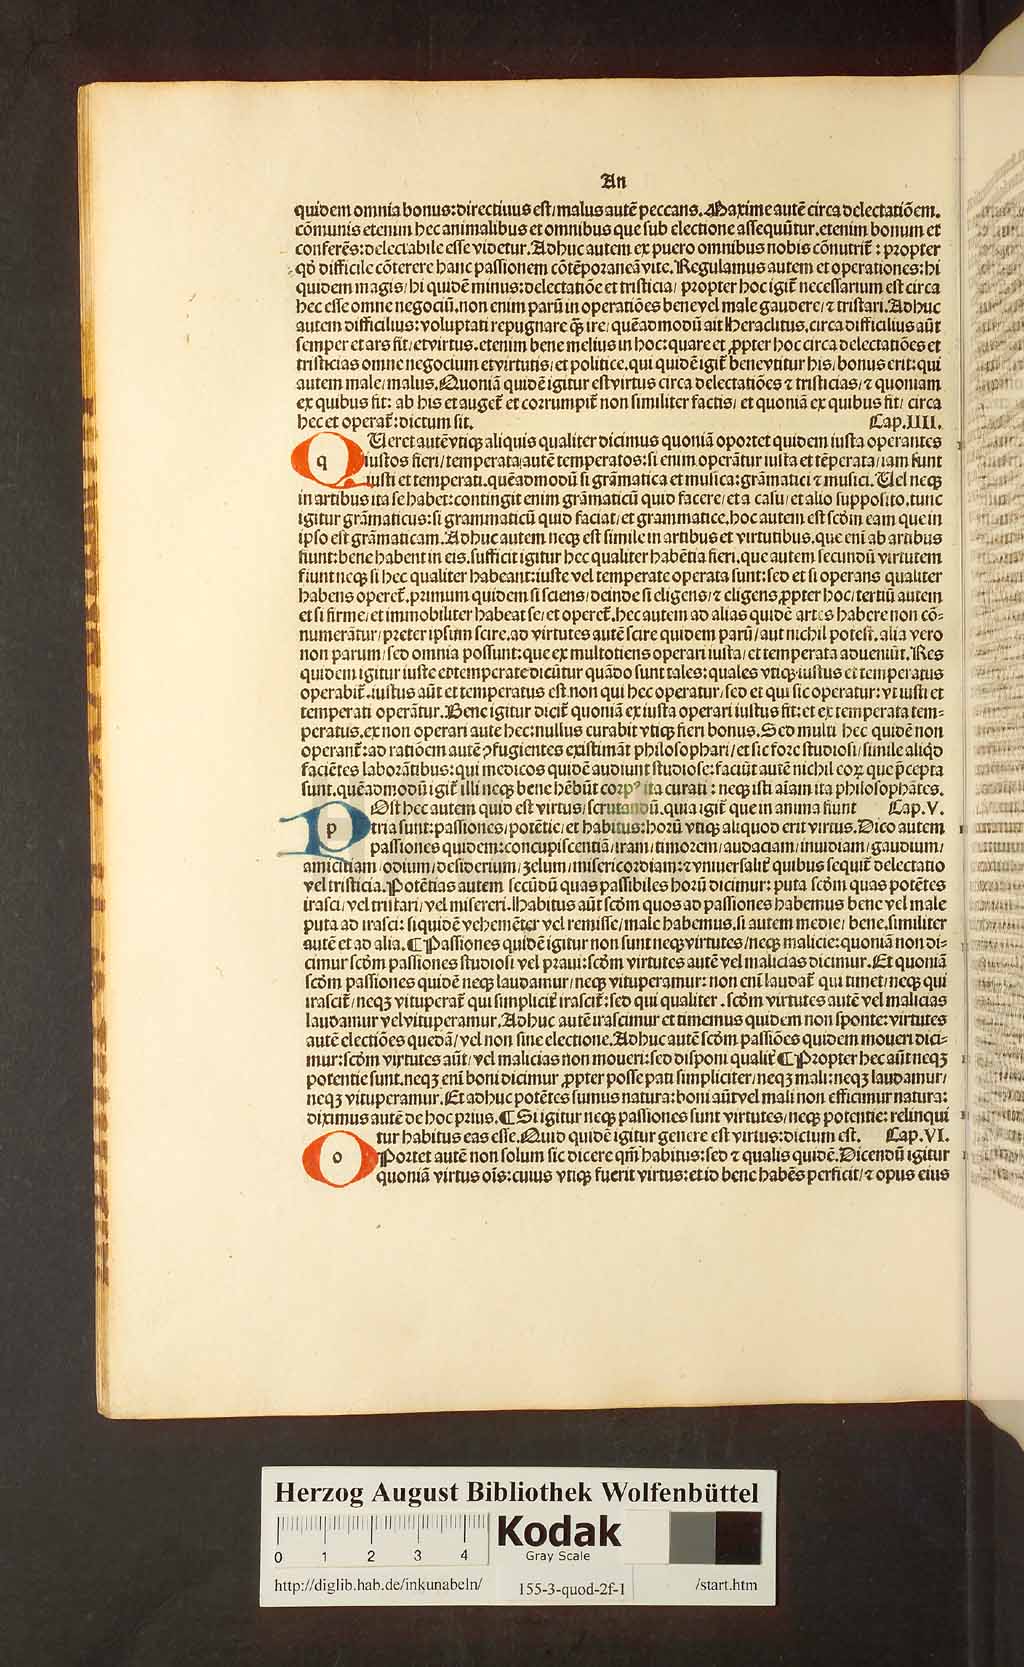 An
quidem omnia bonus:directiuus est/malus autē peccans. Maxime autē circa delectatiōem.
cōmunis etenim hec animalibus et omnibus que sub electione assequūtur.etenim bonum et
conferēs:delectabile esse videtur. Adhuc autem ex puero omnibus nobis cōnutrit̄: propter
qd̄ difficile cōterere hanc passionem cōtēporaneā vite. Regulamus autem et operationes:hi
quidem magis/hi quidē minus:delectatiōe et tristicia/ propter hoc igit̄ necessarium est circa
hec esse omne negociū.non enim parū in operatiōes bene vel male gaudere/⁊ tristari. Adhuc
autem difficilius:voluptati repugnare q̄ȝ ire/ quēadmodū ait Heraclitus.circa difficilius aūt
semper et ars fit/et virtus.etenim bene melius in hoc:quare et ꝓpter hoc circa delectatiōes et
tristicias omne negocium et virtutis/et politice.qui quidē igit̄ bene vtitur his/bonus erit:qui
autem male/malus. Quoniā quidē igitur est virtus circa delectatiōes ⁊ tristicias/⁊ quoniam
ex quibus fit: ab his et auget̄ et corrumpit̄ non similiter factis/ et quoniā ex quibus fit/ circa
hec et operat̄:dictum sit. Cap.IIII.
q Ueret autē vtiqȝ aliquis qualiter dicimus quoniā oportet quidem iusta operantes
iustos fieri/temperata autē temperatos:si enim operātur iusta et tēperata/iam sunt
iusti et temperati.quēadmodū si grāmatica et musica:grāmatici ⁊ musici. Uel neqȝ
in artibus ita se habet:contingit enim grāmaticū quid facere/et a casu/et alio supposito.tunc
igitur grāmaticus:si grammaticū quid faciat/et grammatice.hoc autem est scd̄m eam que in
ipso est grāmaticam. Adhuc autem neqȝ est simile in artibus et virtutibus.que eni ab artibus
fiunt:bene habent in eis.sufficit igitur hec qualiter habētia fieri.que autem secundū virtutem
fiunt neqȝ si hec qualiter habeant:iuste vel temperate operata sunt:sed et si operans qualiter
habens operet̄.primum quidem si sciens/deinde si eligens/⁊ eligens ꝓpter hoc/tertiū autem
et si firme/et immobiliter habeat se/et operet̄.hec autem ad alias quidē artes habere non cō-
numerātur/preter ipsum scire.ad virtutes autē scire quidem parū/aut nichil potest.alia vero
non parum/sed omnia possunt:que ex multotiens operari iusta/et temperata adueniūt. Res
quidem igitur iuste et temperate dicūtur quādo sunt tales:quales vtiqȝ iustus et temperatus
operabit̄.iustus aūt et temperatus est.non qui hec operatur/sed et qui sic operatur:vt iusti et
temperati operātur. Bene igitur dicit̄ quoniā ex iusta operari iustus fit:et ex temperata tem-
peratus.ex non operari aute hec:nullus curabit vtiqȝ fieri bonus. Sed multi hec quidē non
operant̄:ad ratiōem autē ꝯfugientes existimāt philosophari/et sic fore studiosi/simile aliqd̄
faciētes laborātibus:qui medicos quidē audiunt studiose:faciūt autē nichil eorꝝ que p̄cepta
sunt.quēadmodū igit̄ illi neqȝ bene hēbūt corpꝰ ita curati: neqȝ isti aīam ita philosophātes.
p Ost hec autem quid est virtus/scrutandū.quia igit̄ que in anima fiunt Cap.V.
tria sunt:passiones/potētie/et habitus:horū vtiqȝ aliquod erit virtus. Dico autem
passiones quidem:concupiscentiā/iram/timorem/audaciam/inuidiam/gaudium/
amicitiam odium/desiderium/zelum/misericordiam:⁊ vniuersalit̄ quibus sequit̄ delectatio
vel tristicia. Potētias autem secūdū quas passibiles horū dicimur: puta scd̄m quas potētes
irasci/vel tristari/vel misereri. Habitus aūt scd̄m quos ad passiones habemus bene vel male
puta ad irasci: si quidē vehemēter vel remisse/male habemus.si autem medie/ bene.similiter
autē et ad alia. ¶ Passiones quidē igitur non sunt neqȝ virtutes/neqȝ malicie:quoniā non di-
cimur scd̄m passiones studiosi vel praui:scd̄m virtutes autē vel malicias dicimur. Et quoniā
scd̄m passiones quidē neqȝ laudamur/neqȝ vituperamur: non enī laudat̄ qui timet/neqȝ qui
irascit̄/neqȝ vituperat̄ qui simplicit̄ irascit̄:sed qui qualiter.scd̄m virtutes autē vel malicias
laudamur vel vituperamur. Adhuc autē irascimur et timemus quidem non sponte:virtutes
autē electiōes quedā/vel non sine electione. Adhuc autē scd̄m passiōes quidem moueri dici-
mur:scd̄m virtutes aūt/vel malicias non moueri:sed disponi qualit̄ ¶ Propter hec aūt neqȝ
potentie sunt.neqȝ enī boni dicimur ꝓpter posse pati simpliciter/neqȝ mali:neqȝ laudamur/
neqȝ vituperamur. Et adhuc potētes sumus natura:boni aūt vel mali non efficimur natura:
diximus autē de hoc prius. ¶ Si igitur neqȝ passiones sunt virtutes/neqȝ potentie: relinqui
tur habitus eas esse. Quid quidē igitur genere est virtus:dictum est. Cap.VI.
o Portet autē non solum sic dicere qm̄ habitus:sed ⁊ qualis quidē. Dicendū igitur
quoniā virtus oīs:cuius vtiqȝ fuerit virtus:et id bene habēs perficit/⁊ opus eius
Herzog August Bibliothek Wolfenbüttel
0 1 2 3 4
Kodak
Gray Scale
http://diglib.hab.de/inkunabeln/ 155-3-quod-2f-1 /start.htm